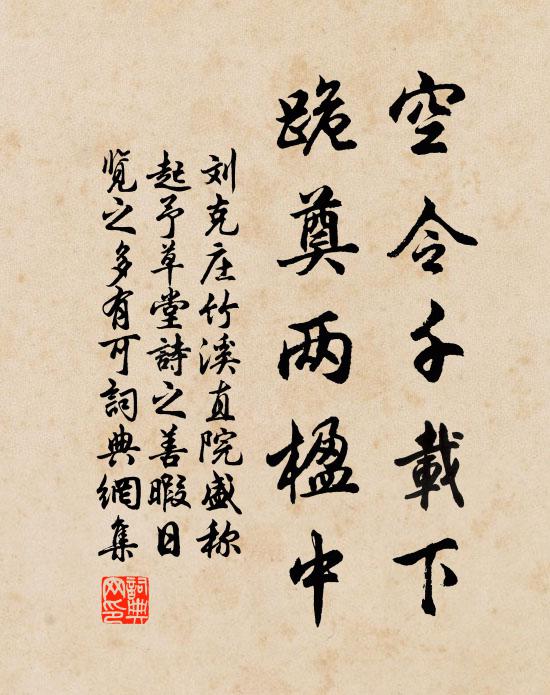 空令千載下
跪奠两楹中
刘克庄竹溪直院盛称
起予草堂詩之善暇日
覽之多有可詞典網集
詞典网印